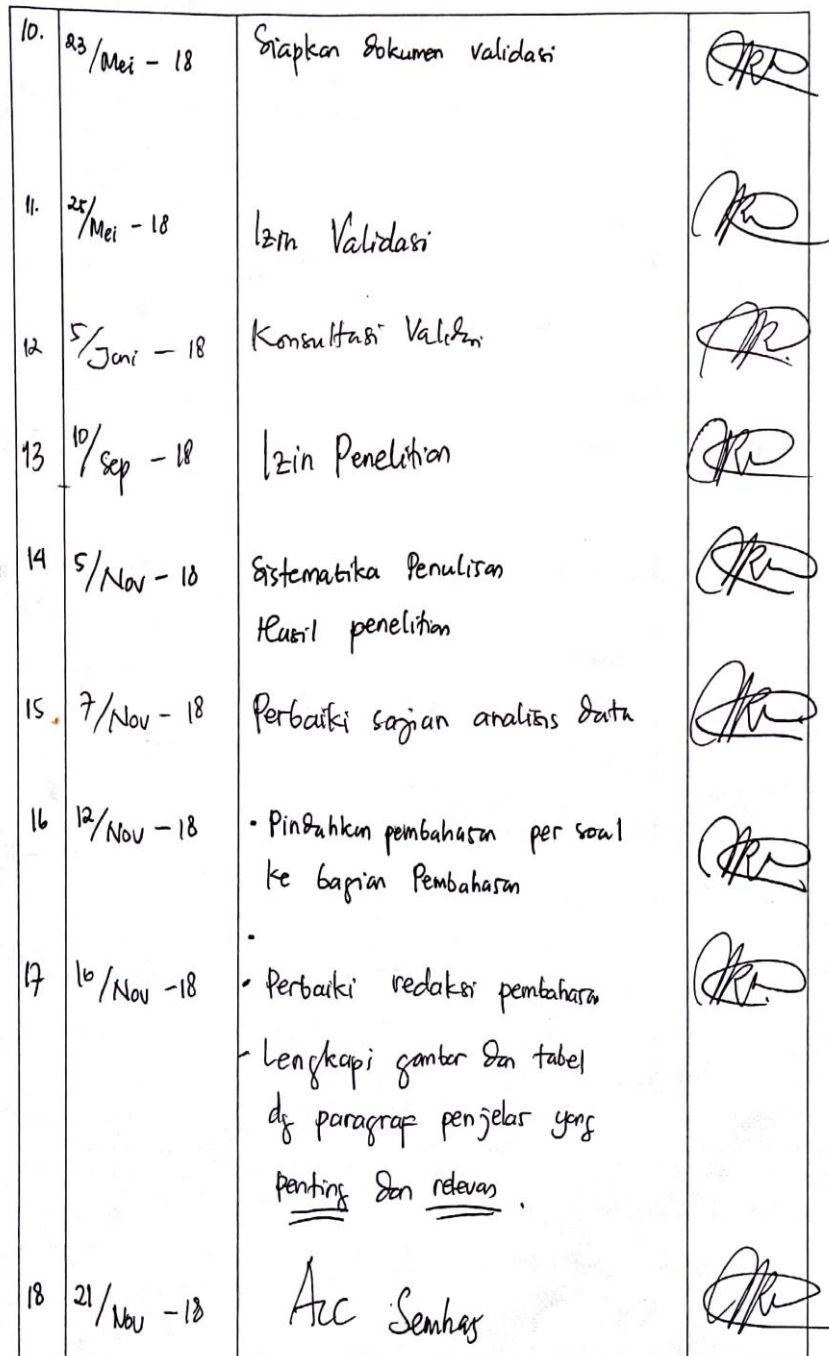 10. 23/Mei - 18 Siapkan dokumen validasi
11. 25/Mei - 18 Izin Validasi
12 5/Juni - 18 Konsultasi Validasi
13 10/Sep - 18 Izin Penelitian
14 5/Nov - 18 Sistematika Penulisan
Hasil penelitian
15. 7/Nov - 18 Perbaiki sajian analisis data
16 12/Nov - 18 • Pindahkan pembahasan per soal
ke bagian Pembahasan
17 16/Nov - 18 • Perbaiki redaksi pembahasan
- Lengkapi gambar dan tabel
dg paragraf penjelas yang
penting dan relevan.
18 21/Nov - 18 Acc Semhas